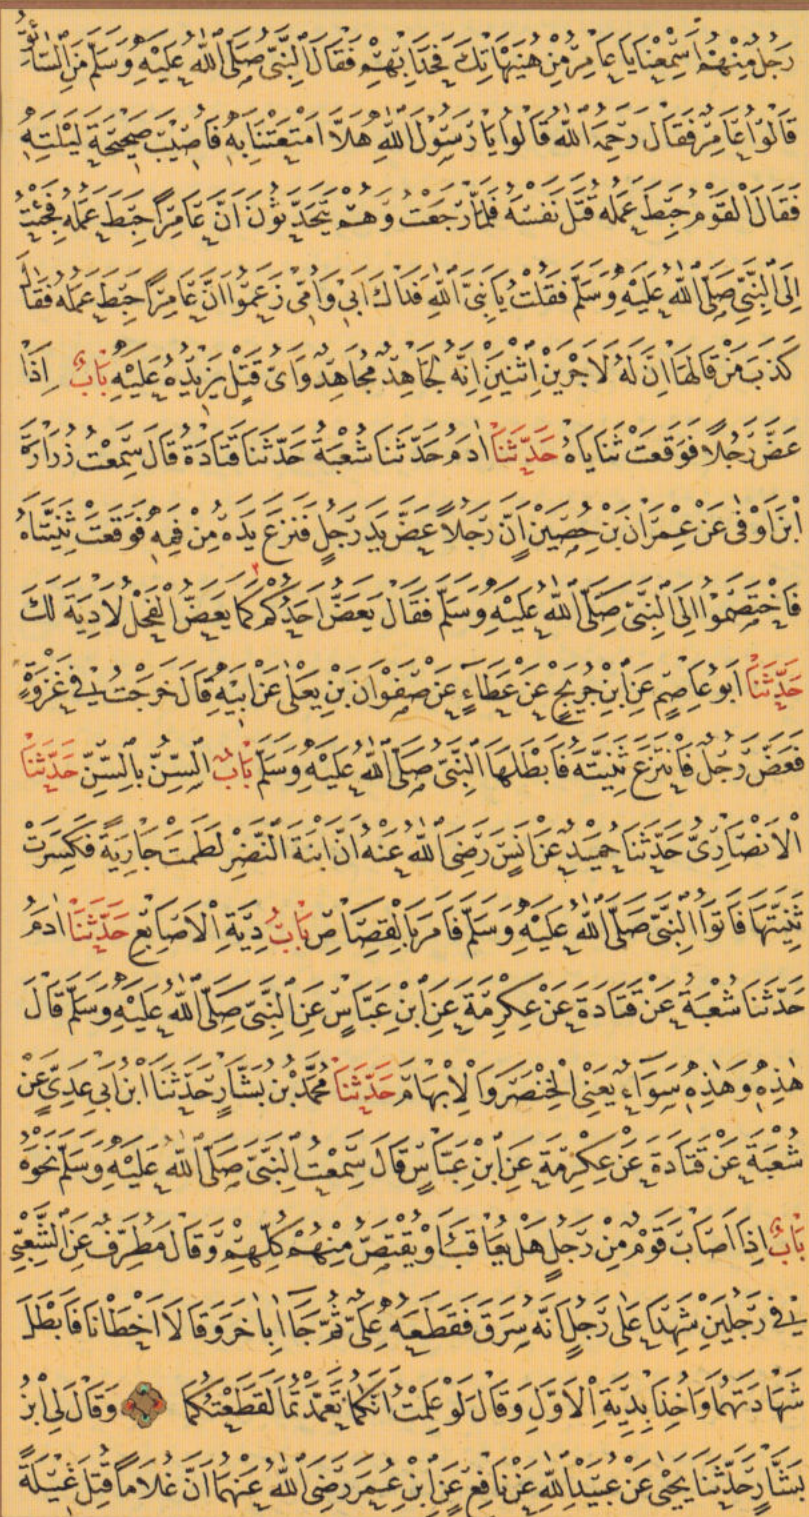 رَجُلٌ مِنْهُمْ اَسْمِعْنَا يَا عَامِرُ مِنْ هُنَيْهَاتِكَ فَحَدَا بِهِمْ فَقَالَ النَّبِيُّ صَلَّى اللّٰهُ عَلَيْهِ وَسَلَّمَ مَنِ السَّائِقُ
قَالُوا عَامِرٌ فَقَالَ رَحِمَهُ اللّٰهُ قَالُوا يَا رَسُولَ اللّٰهِ هَلَّا اَمْتَعْتَنَا بِهِ فَاُصِيبَ صَبِيحَةَ لَيْلَتِهِ
فَقَالَ الْقَوْمُ حَبِطَ عَمَلُهُ قَتَلَ نَفْسَهُ فَلَمَّا رَجَعْتُ وَهُمْ يَتَحَدَّثُونَ اَنَّ عَامِرًا حَبِطَ عَمَلُهُ فَجِئْتُ
اِلَى النَّبِيِّ صَلَّى اللّٰهُ عَلَيْهِ وَسَلَّمَ فَقُلْتُ يَا نَبِيَّ اللّٰهِ فَدَاكَ اَبِي وَاُمِّي زَعَمُوا اَنَّ عَامِرًا حَبِطَ عَمَلُهُ فَقَالَ
كَذَبَ مَنْ قَالَهَا اِنَّ لَهُ لَاَجْرَيْنِ اثْنَيْنِ اِنَّهُ لَجَاهِدٌ مُجَاهِدٌ وَاَىُّ قَتْلٍ يَزِيدُهُ عَلَيْهِ بَابٌ اِذَا
عَضَّ رَجُلًا فَوَقَعَتْ ثَنَايَاهُ حَدَّثَنَا اٰدَمُ حَدَّثَنَا شُعْبَةُ حَدَّثَنَا قَتَادَةُ قَالَ سَمِعْتُ زُرَارَةَ
ابْنَ اَوْفٰى عَنْ عِمْرَانَ بْنِ حُصَيْنٍ اَنَّ رَجُلًا عَضَّ يَدَ رَجُلٍ فَنَزَعَ يَدَهُ مِنْ فَمِهِ فَوَقَعَتْ ثَنِيَّتَاهُ
فَاخْتَصَمُوا اِلَى النَّبِيِّ صَلَّى اللّٰهُ عَلَيْهِ وَسَلَّمَ فَقَالَ يَعَضُّ اَحَدُكُمْ كَمَا يَعَضُّ الْفَحْلُ لَا دِيَةَ لَكَ
حَدَّثَنَا اَبُو عَاصِمٍ عَنِ ابْنِ جُرَيْجٍ عَنْ عَطَاءٍ عَنْ صَفْوَانَ بْنِ يَعْلٰى عَنْ اَبِيهِ قَالَ خَرَجْتُ فِي غَزْوَةٍ
فَعَضَّ رَجُلٌ فَانْتَزَعَ ثَنِيَّتَهُ فَاَبْطَلَهَا النَّبِيُّ صَلَّى اللّٰهُ عَلَيْهِ وَسَلَّمَ بَابُ السِّنُّ بِالسِّنِّ حَدَّثَنَا
الْاَنْصَارِيُّ حَدَّثَنَا حُمَيْدٌ عَنْ اَنَسٍ رَضِيَ اللّٰهُ عَنْهُ اَنَّ ابْنَةَ النَّضْرِ لَطَمَتْ جَارِيَةً فَكَسَرَتْ
ثَنِيَّتَهَا فَاَتَوُا النَّبِيَّ صَلَّى اللّٰهُ عَلَيْهِ وَسَلَّمَ فَاَمَرَ بِالْقِصَاصِ بَابُ دِيَةِ الْاَصَابِعِ حَدَّثَنَا اٰدَمُ
حَدَّثَنَا شُعْبَةُ عَنْ قَتَادَةَ عَنْ عِكْرِمَةَ عَنِ ابْنِ عَبَّاسٍ عَنِ النَّبِيِّ صَلَّى اللّٰهُ عَلَيْهِ وَسَلَّمَ قَالَ
هٰذِهِ وَهٰذِهِ سَوَاءٌ يَعْنِي الْخِنْصَرَ وَالْاِبْهَامَ حَدَّثَنَا مُحَمَّدُ بْنُ بَشَّارٍ حَدَّثَنَا ابْنُ اَبِي عَدِيٍّ عَنْ
شُعْبَةَ عَنْ قَتَادَةَ عَنْ عِكْرِمَةَ عَنِ ابْنِ عَبَّاسٍ قَالَ سَمِعْتُ النَّبِيَّ صَلَّى اللّٰهُ عَلَيْهِ وَسَلَّمَ نَحْوَهُ
بَابٌ اِذَا اَصَابَ قَوْمٌ مِنْ رَجُلٍ هَلْ يُعَاقَبُ اَوْ يُقْتَصُّ مِنْهُمْ كُلِّهِمْ وَقَالَ مُطَرِّفٌ عَنِ الشَّعْبِيِّ
فِي رَجُلَيْنِ شَهِدَا عَلَى رَجُلٍ اَنَّهُ سَرَقَ فَقَطَعَهُ عَلِيٌّ ثُمَّ جَاآ بِاٰخَرَ وَقَالَا اَخْطَاْنَا فَاَبْطَلَ
شَهَادَتَهُمَا وَاُخِذَا بِدِيَةِ الْاَوَّلِ وَقَالَ لَوْ عَلِمْتُ اَنَّكُمَا تَعَمَّدْتُمَا لَقَطَعْتُكُمَا وَقَالَ لِي ابْنُ
بَشَّارٍ حَدَّثَنَا يَحْيٰى عَنْ عُبَيْدِ اللّٰهِ عَنْ نَافِعٍ عَنِ ابْنِ عُمَرَ رَضِيَ اللّٰهُ عَنْهُمَا اَنَّ غُلَامًا قُتِلَ غِيلَةً